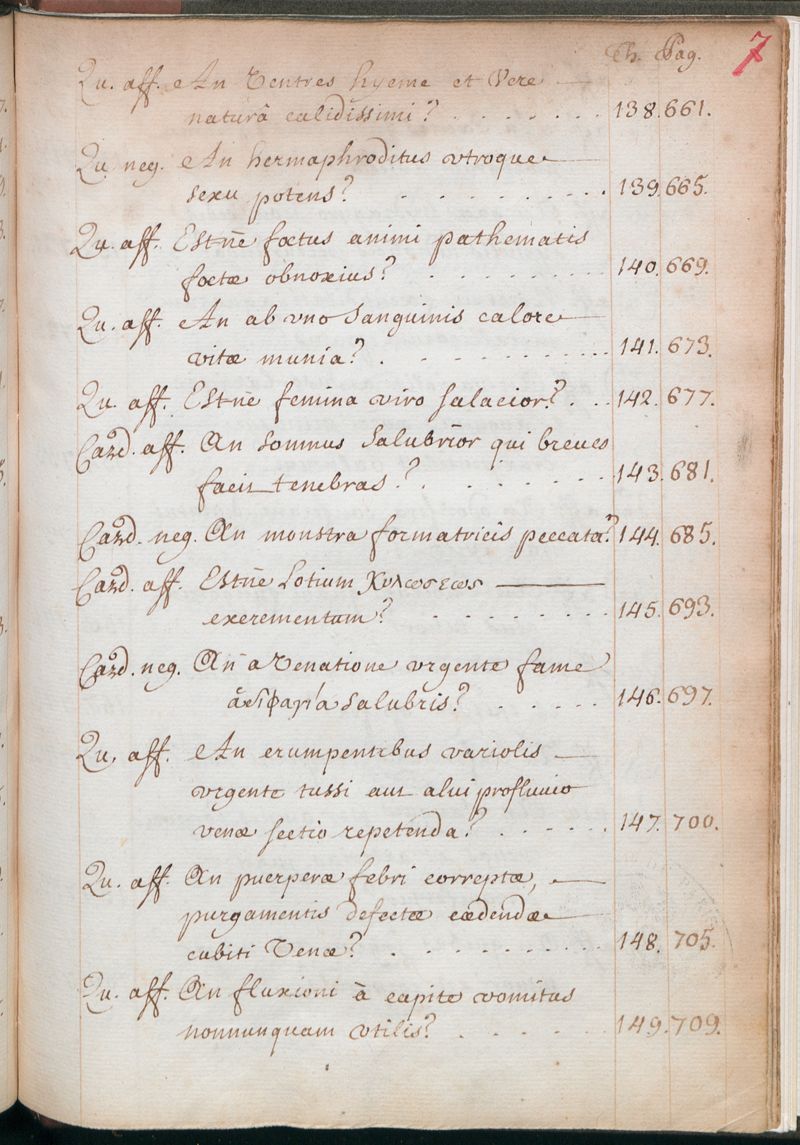 Th. Pag. 7
Qu. aff. An Ventres hyeme et Vere
naturâ calidissimi? 138. 661.
Qu. neg. An hermaphroditus vtroque
sexu potens? 139. 665.
Qu. aff. Estne fœtus animi pathematis
fœtæ obnoxius? 140. 669.
Qu. aff. An ab vno sanguinis calore
vitæ munia? 141. 673.
Qu. aff. Estne femina viro salacior? 142. 677.
Card. aff. An somnus salubrior qui breues
facit tenebras? 143. 681.
Card. neg. An monstra formatricis peccata? 144. 685.
Card. aff. Estne Lotium χυλωσεως
excrementum? 145. 693.
Card. neg. An a Venatione vrgente fame
ἀδηφαγία salubris? 146. 697.
Qu. aff. An erumpentibus variolis
vrgente tussi aut alui profluuio
venæ sectio repetenda? 147. 700.
Qu. aff. An puerperæ febri correptæ,
purgamentis defectæ cædendæ
cubiti Venæ? 148. 705.
Qu. aff. An fluxioni à capite vomitus
nonnunquam vtilis? 149. 709.